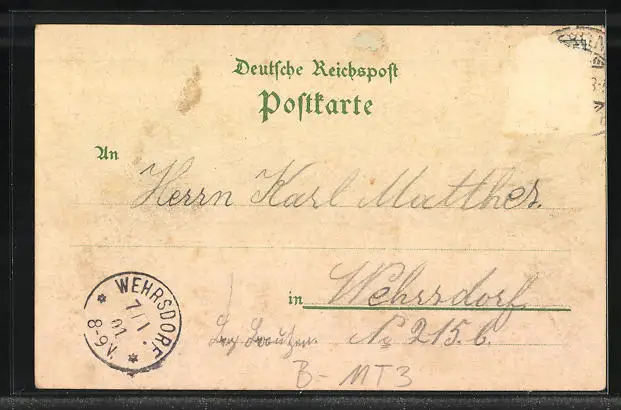 Deutsche Reichspost
Postkarte
An
Herrn Karl Matthes.
in Wehrsdorf
Bez. Bautzen. No 215.b.
WEHRSDORF
7/1
01
8-9V.
B-MT3